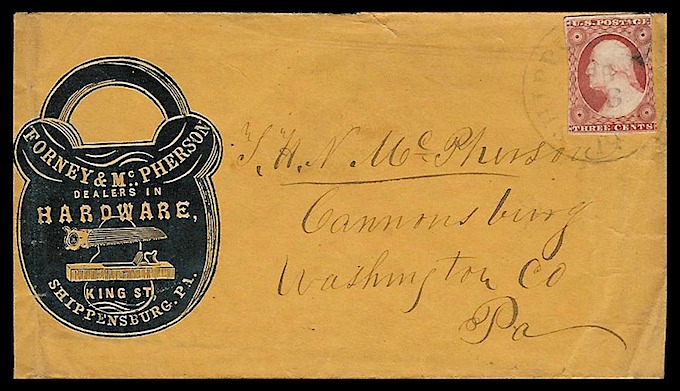 FORNEY & Mc PHERSON
DEALERS IN
HARDWARE,
KING ST
SHIPPENSBURG, PA.
U.S. POSTAGE
THREE CENTS
T. H. N. Mc Pherson
Cannonsburg
Washington Co
Pa